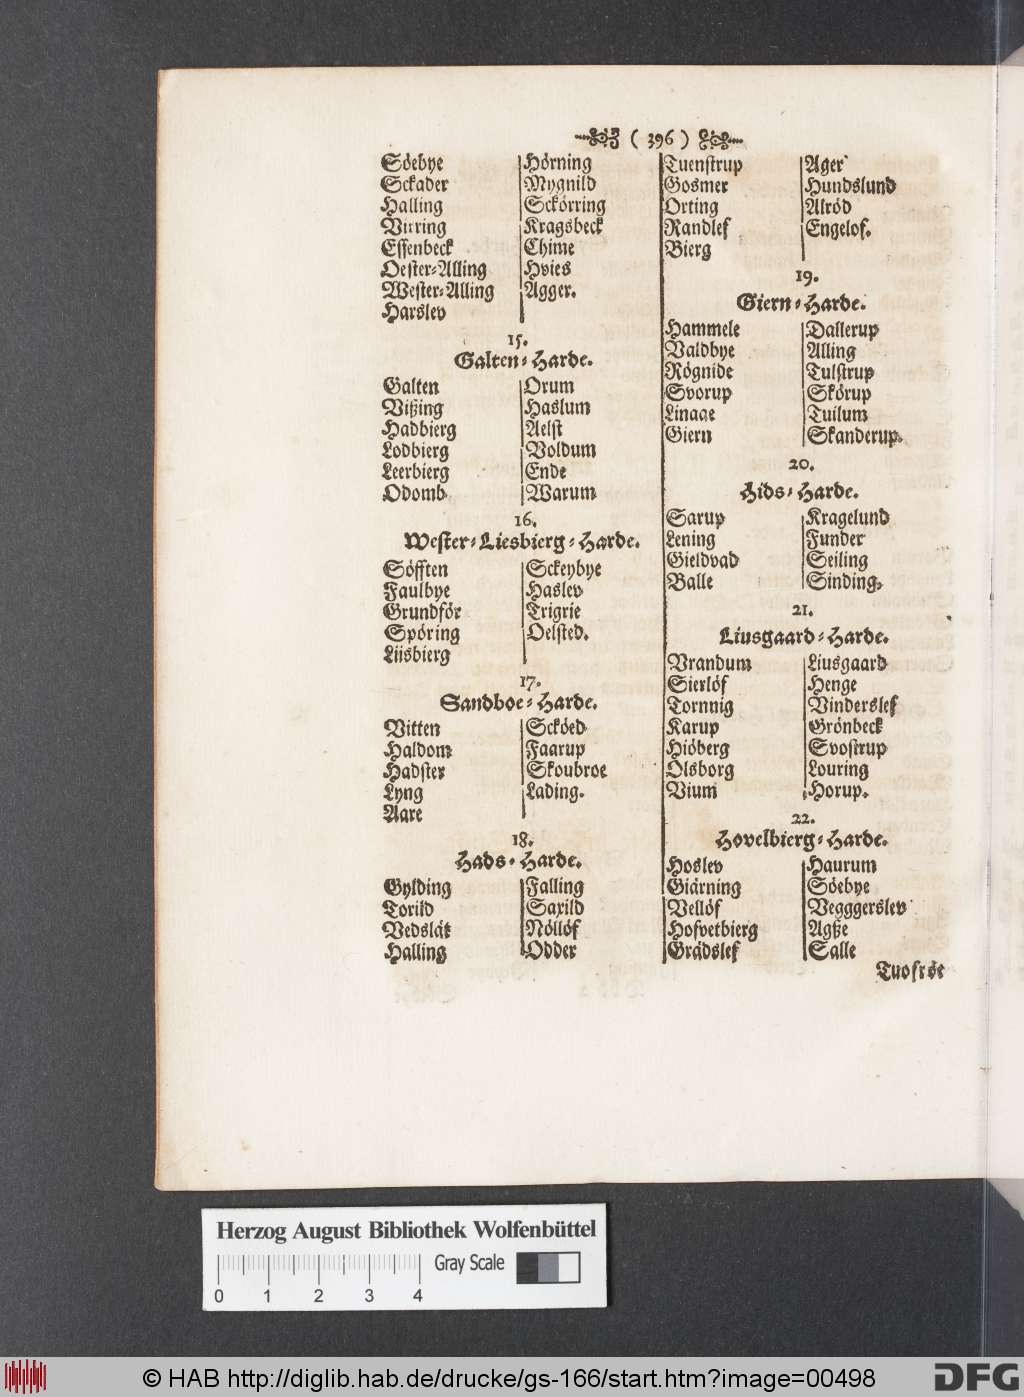 ( 396 )
Söebye
Sckader
Halling
Virring
Essenbeck
Oester-Alling
Wester-Alling
Harslev
Hörning
Mygnild
Sckörring
Kragsbeck
Chime
Hvies
Agger.
15.
Galten-Harde.
Galten
Vißing
Hadbierg
Lodbierg
Leerbierg
Odomb
Orum
Haslum
Aelst
Voldum
Ende
Warum
16.
Wester-Liesbierg-Harde.
Söfften
Faulbye
Grundför
Spöring
Liisbierg
Sckeybye
Haslev
Trigrie
Oelsted.
17.
Sandboe-Harde.
Vitten
Haldom
Hadster
Lyng
Aare
Scköed
Faarup
Skoubroe
Lading.
18.
Hads-Harde.
Gylding
Torild
Vedslät
Halling
Falling
Saxild
Nöllöf
Odder
Tuenstrup
Gosmer
Orting
Randlef
Bierg
Ager
Hundslund
Alröd
Engelof.
19.
Giern-Harde.
Hammele
Valdbye
Rögnide
Svorup
Linaae
Giern
Dallerup
Alling
Tulstrup
Skörup
Tuilum
Skanderup.
20.
Hids-Harde.
Sarup
Lening
Gieldvad
Balle
Kragelund
Funder
Seiling
Sinding.
21.
Liusgaard-Harde.
Vrandum
Sierlöf
Tornnig
Karup
Hiöberg
Olsborg
Vium
Liusgaard
Henge
Vinderslef
Grönbeck
Svostrup
Louring
Horup.
22.
Hovelbierg-Harde.
Hoslev
Giärning
Vellöf
Hofvetbierg
Grädslef
Haurum
Söebye
Vegggerslev
Agße
Salle
Tuosröe
Herzog August Bibliothek Wolfenbüttel
Gray Scale
0 1 2 3 4
© HAB http://diglib.hab.de/drucke/gs-166/start.htm?image=00498
DFG